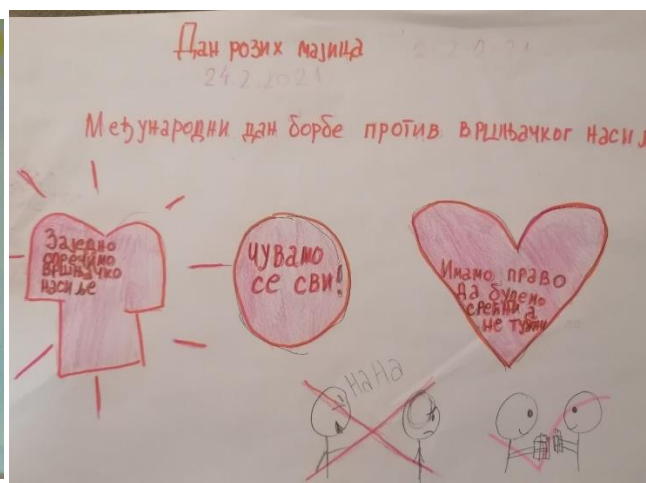 Дан розих мајица
24.2.2021
Међународни дан борбе против вршњачког насиљ
Заједно
спречимо
вршњачко
насиље
Чувамо
се сви!
Имамо право
да будемо
срећни а
не тужни
НаНа